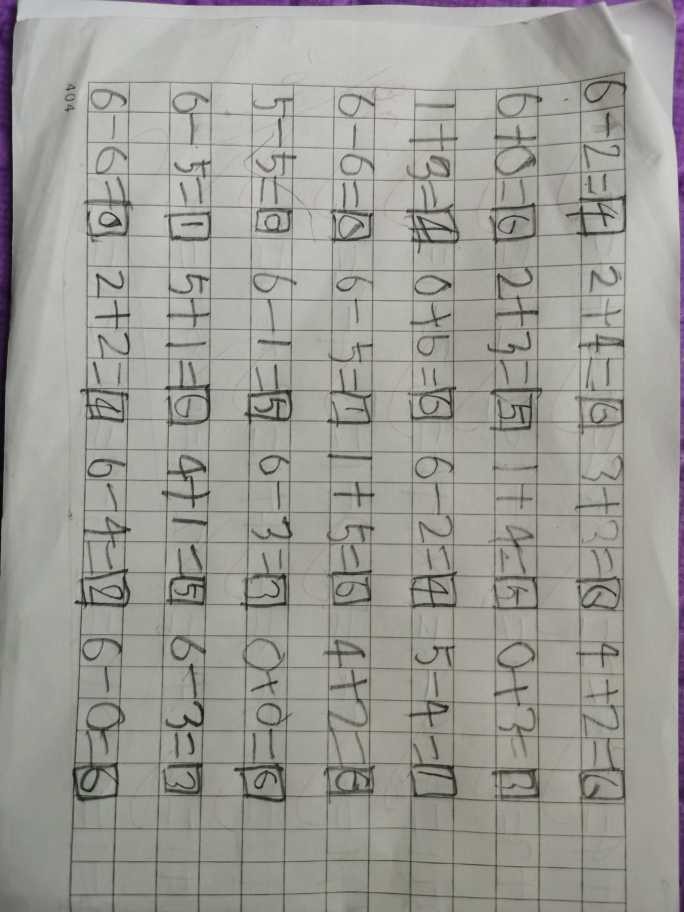 6-2=4 2+4=6 3+3=6 4+2=6
6+0=6 2+3=5 1+4=5 0+3=3
1+3=4 0+6=6 6-2=4 5-4=1
6-6=0 6-5=1 1+5=6 4+2=6
5-5=0 6-1=5 6-3=3 0+6=6
6-5=1 5+1=6 4+1=5 6-3=3
6-6=0 2+2=4 6-4=2 6-0=6
404